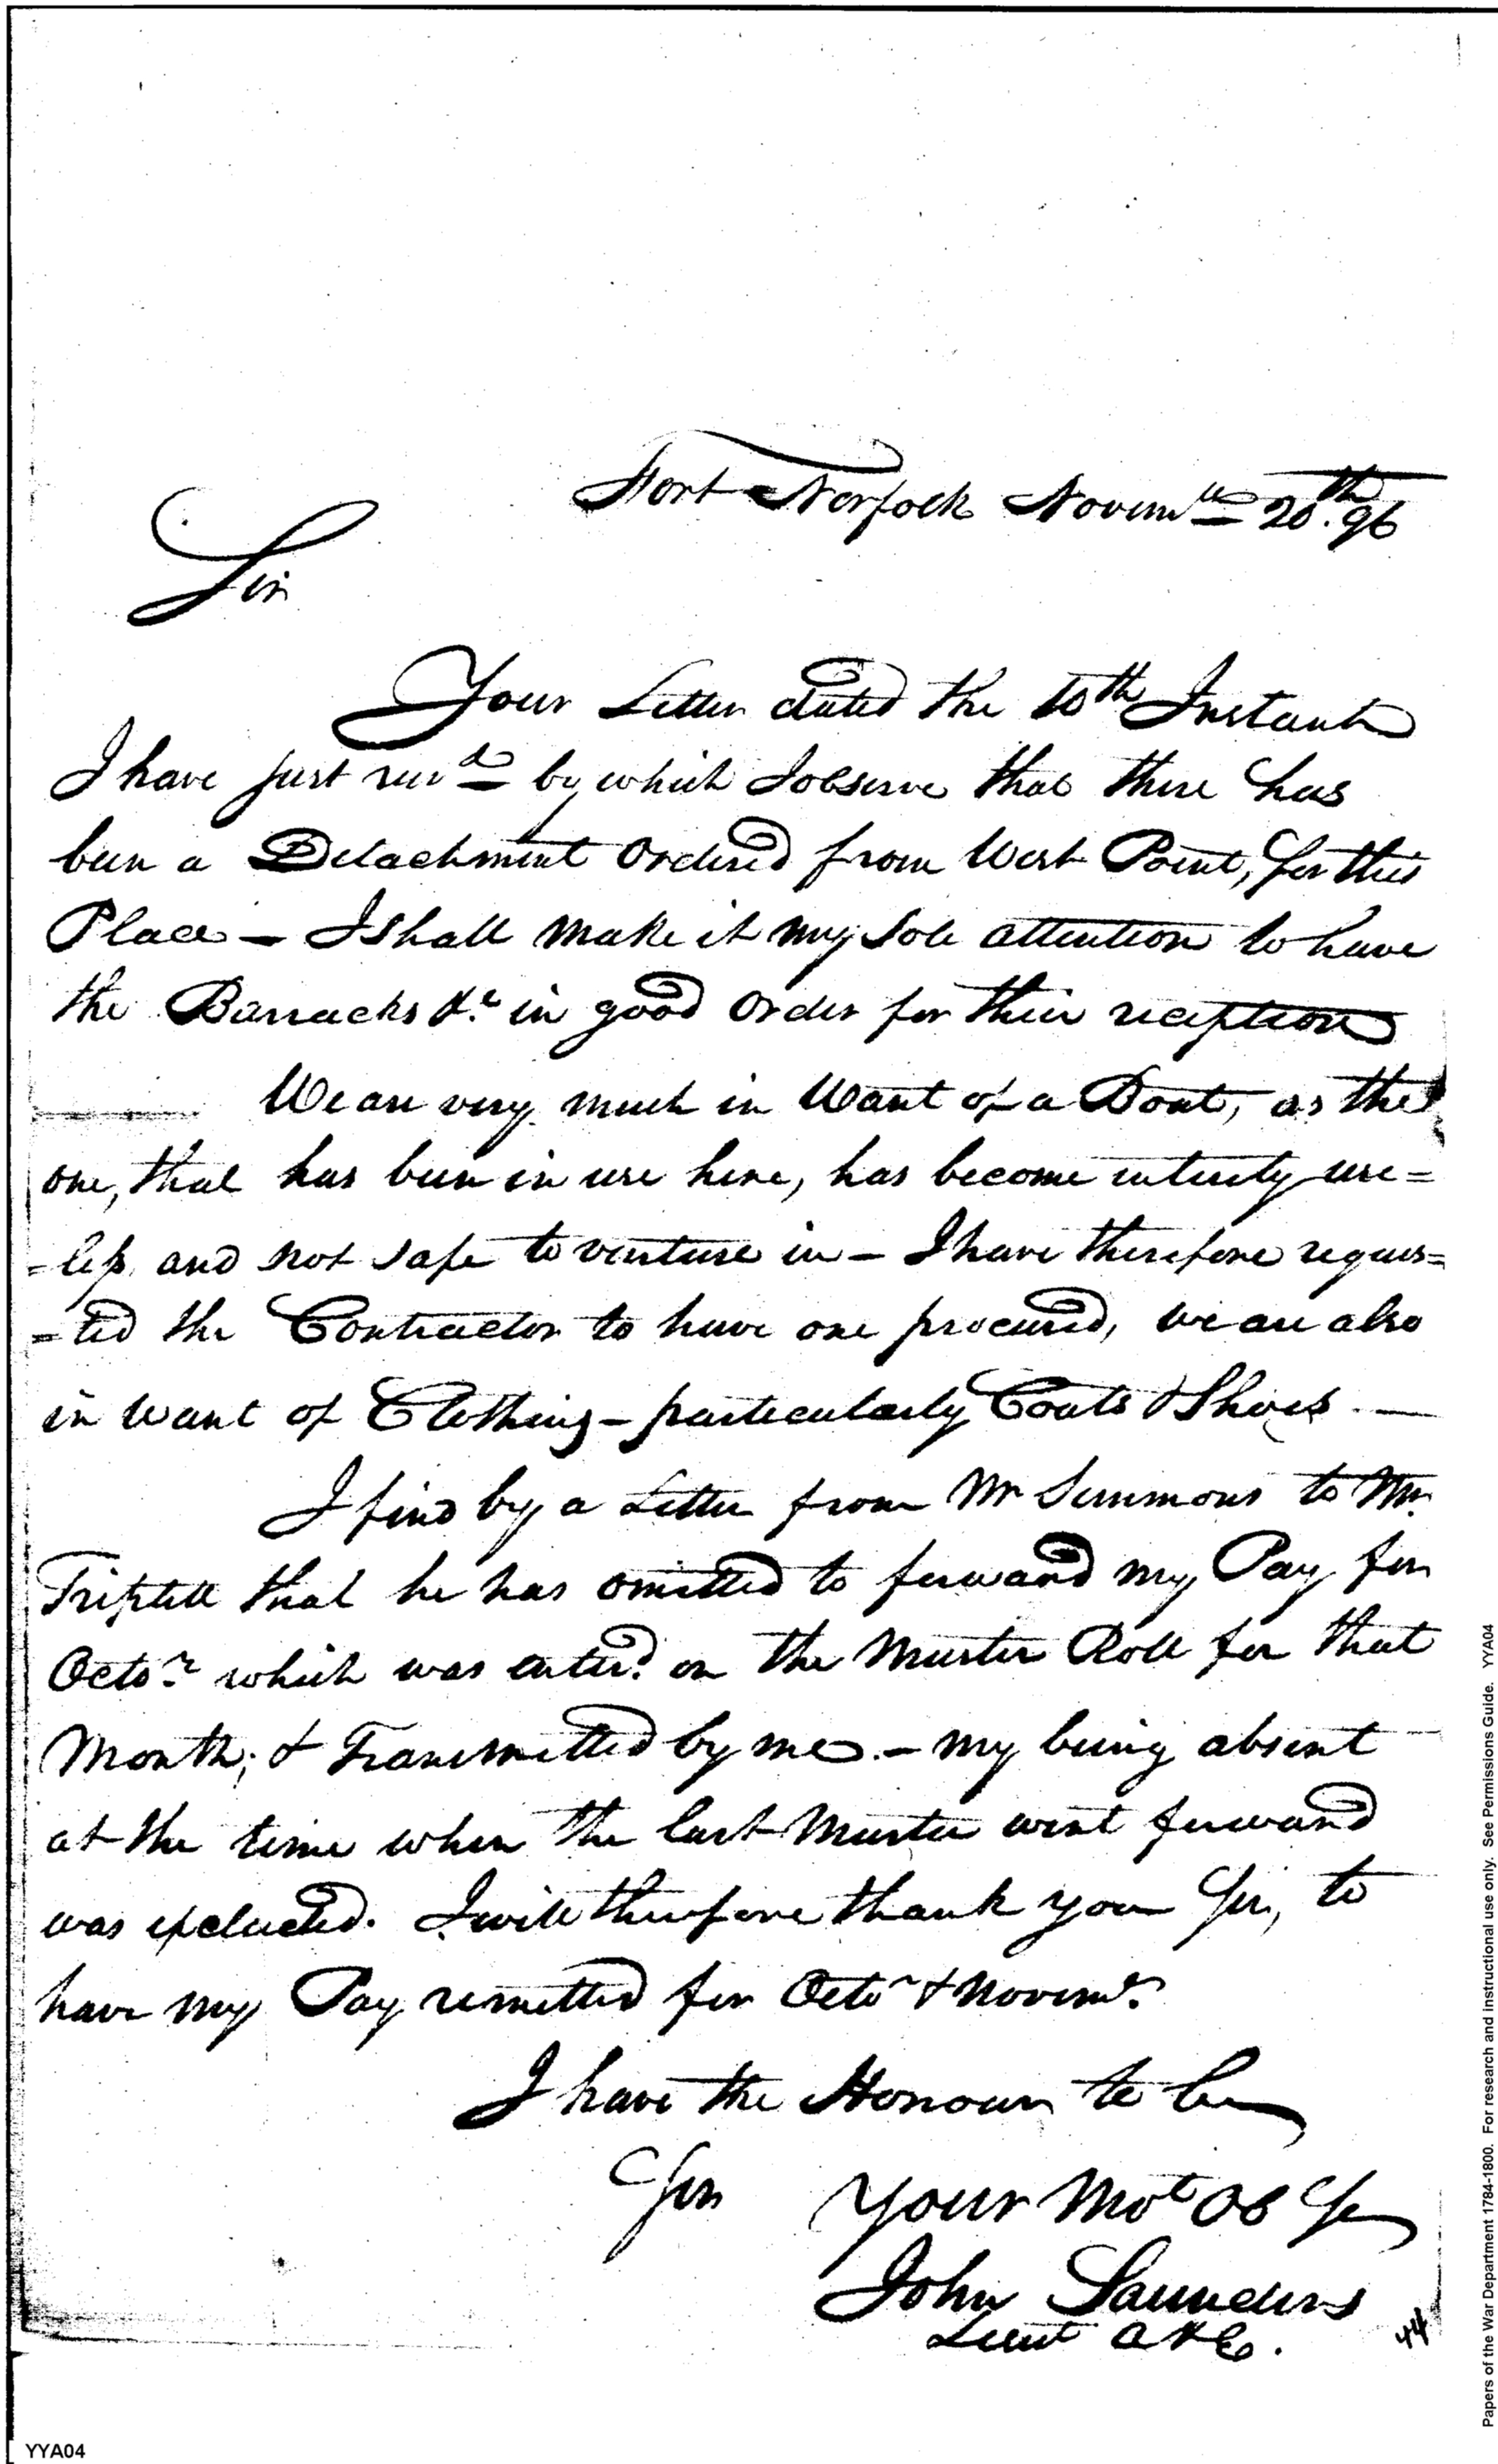 Fort Norfock Novemr 20th. 96
Sir
Your Letter dated the 10th Instant
I have just recvd by which I observe that there has
been a Detachment Ordered from West Point, for this
Place – I Shall make it my Sole attention to have
the Barracks &c. in good Order for their reception
We are very much in Want of a Boat, as the
one, that has been in use here, has become intirely use=
=less and not safe to venture in – I have therefore reques=
=ted the Contractor to have one procured, we are also
in want of Clothing – particularly Coats & Shoes —
I find by a Letter from Mr Simmons to Mr.
Triplett that he has omitted to forward my Pay for
Octor. which was enterd. on the Muster Roll for that
Month; & Transmitted by me. – my being absent
at the time when the last Muster went forward
was excluded. I will therefore thank you Sir, to
have my Pay remitted for Octor & Novemr.
I have the Honour to be
Sir Your Mot Ob Se
John Saunders
Lieut A & E.
44
Papers of the War Department 1784-1800. For research and instructional use only. See Permissions Guide. YYA04
YYA04